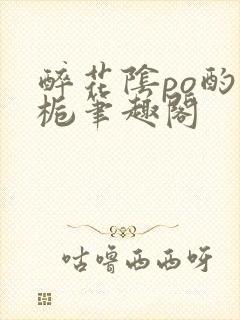 醉花陰po酌
梔筆趣閣
咕噜西西呀